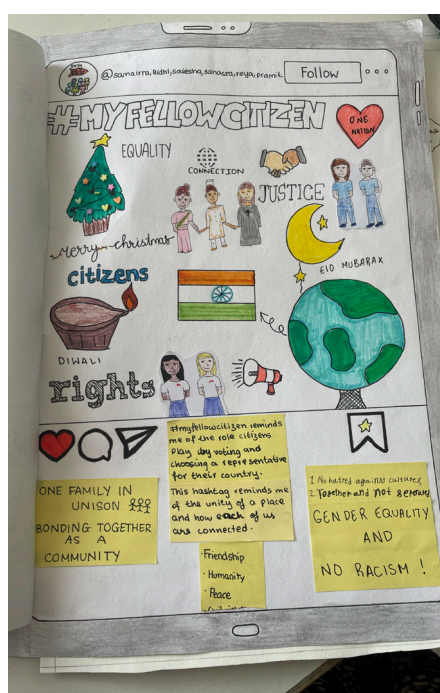 @samairra, Ridhi, saiesha, sanacra, reya, pramit.
Follow
#MYFELLOWCITIZEN
ONE
NATION
EQUALITY
CONNECTION
JUSTICE
merry christmas
EID MUBARAK
citizens
DIWALI
rights
#myfellowcitizen reminds
me of the role citizens
play by voting and
choosing a representative
for their country.
This hashtag reminds me
of the unity of a place
and how each of us
are connected.
· Friendship
· Humanity
· Peace
ONE FAMILY IN
UNISON
BONDING TOGETHER
AS A
COMMUNITY
1. No hatred against cultures
2. Together and not
GENDER EQUALITY
AND
NO RACISM !